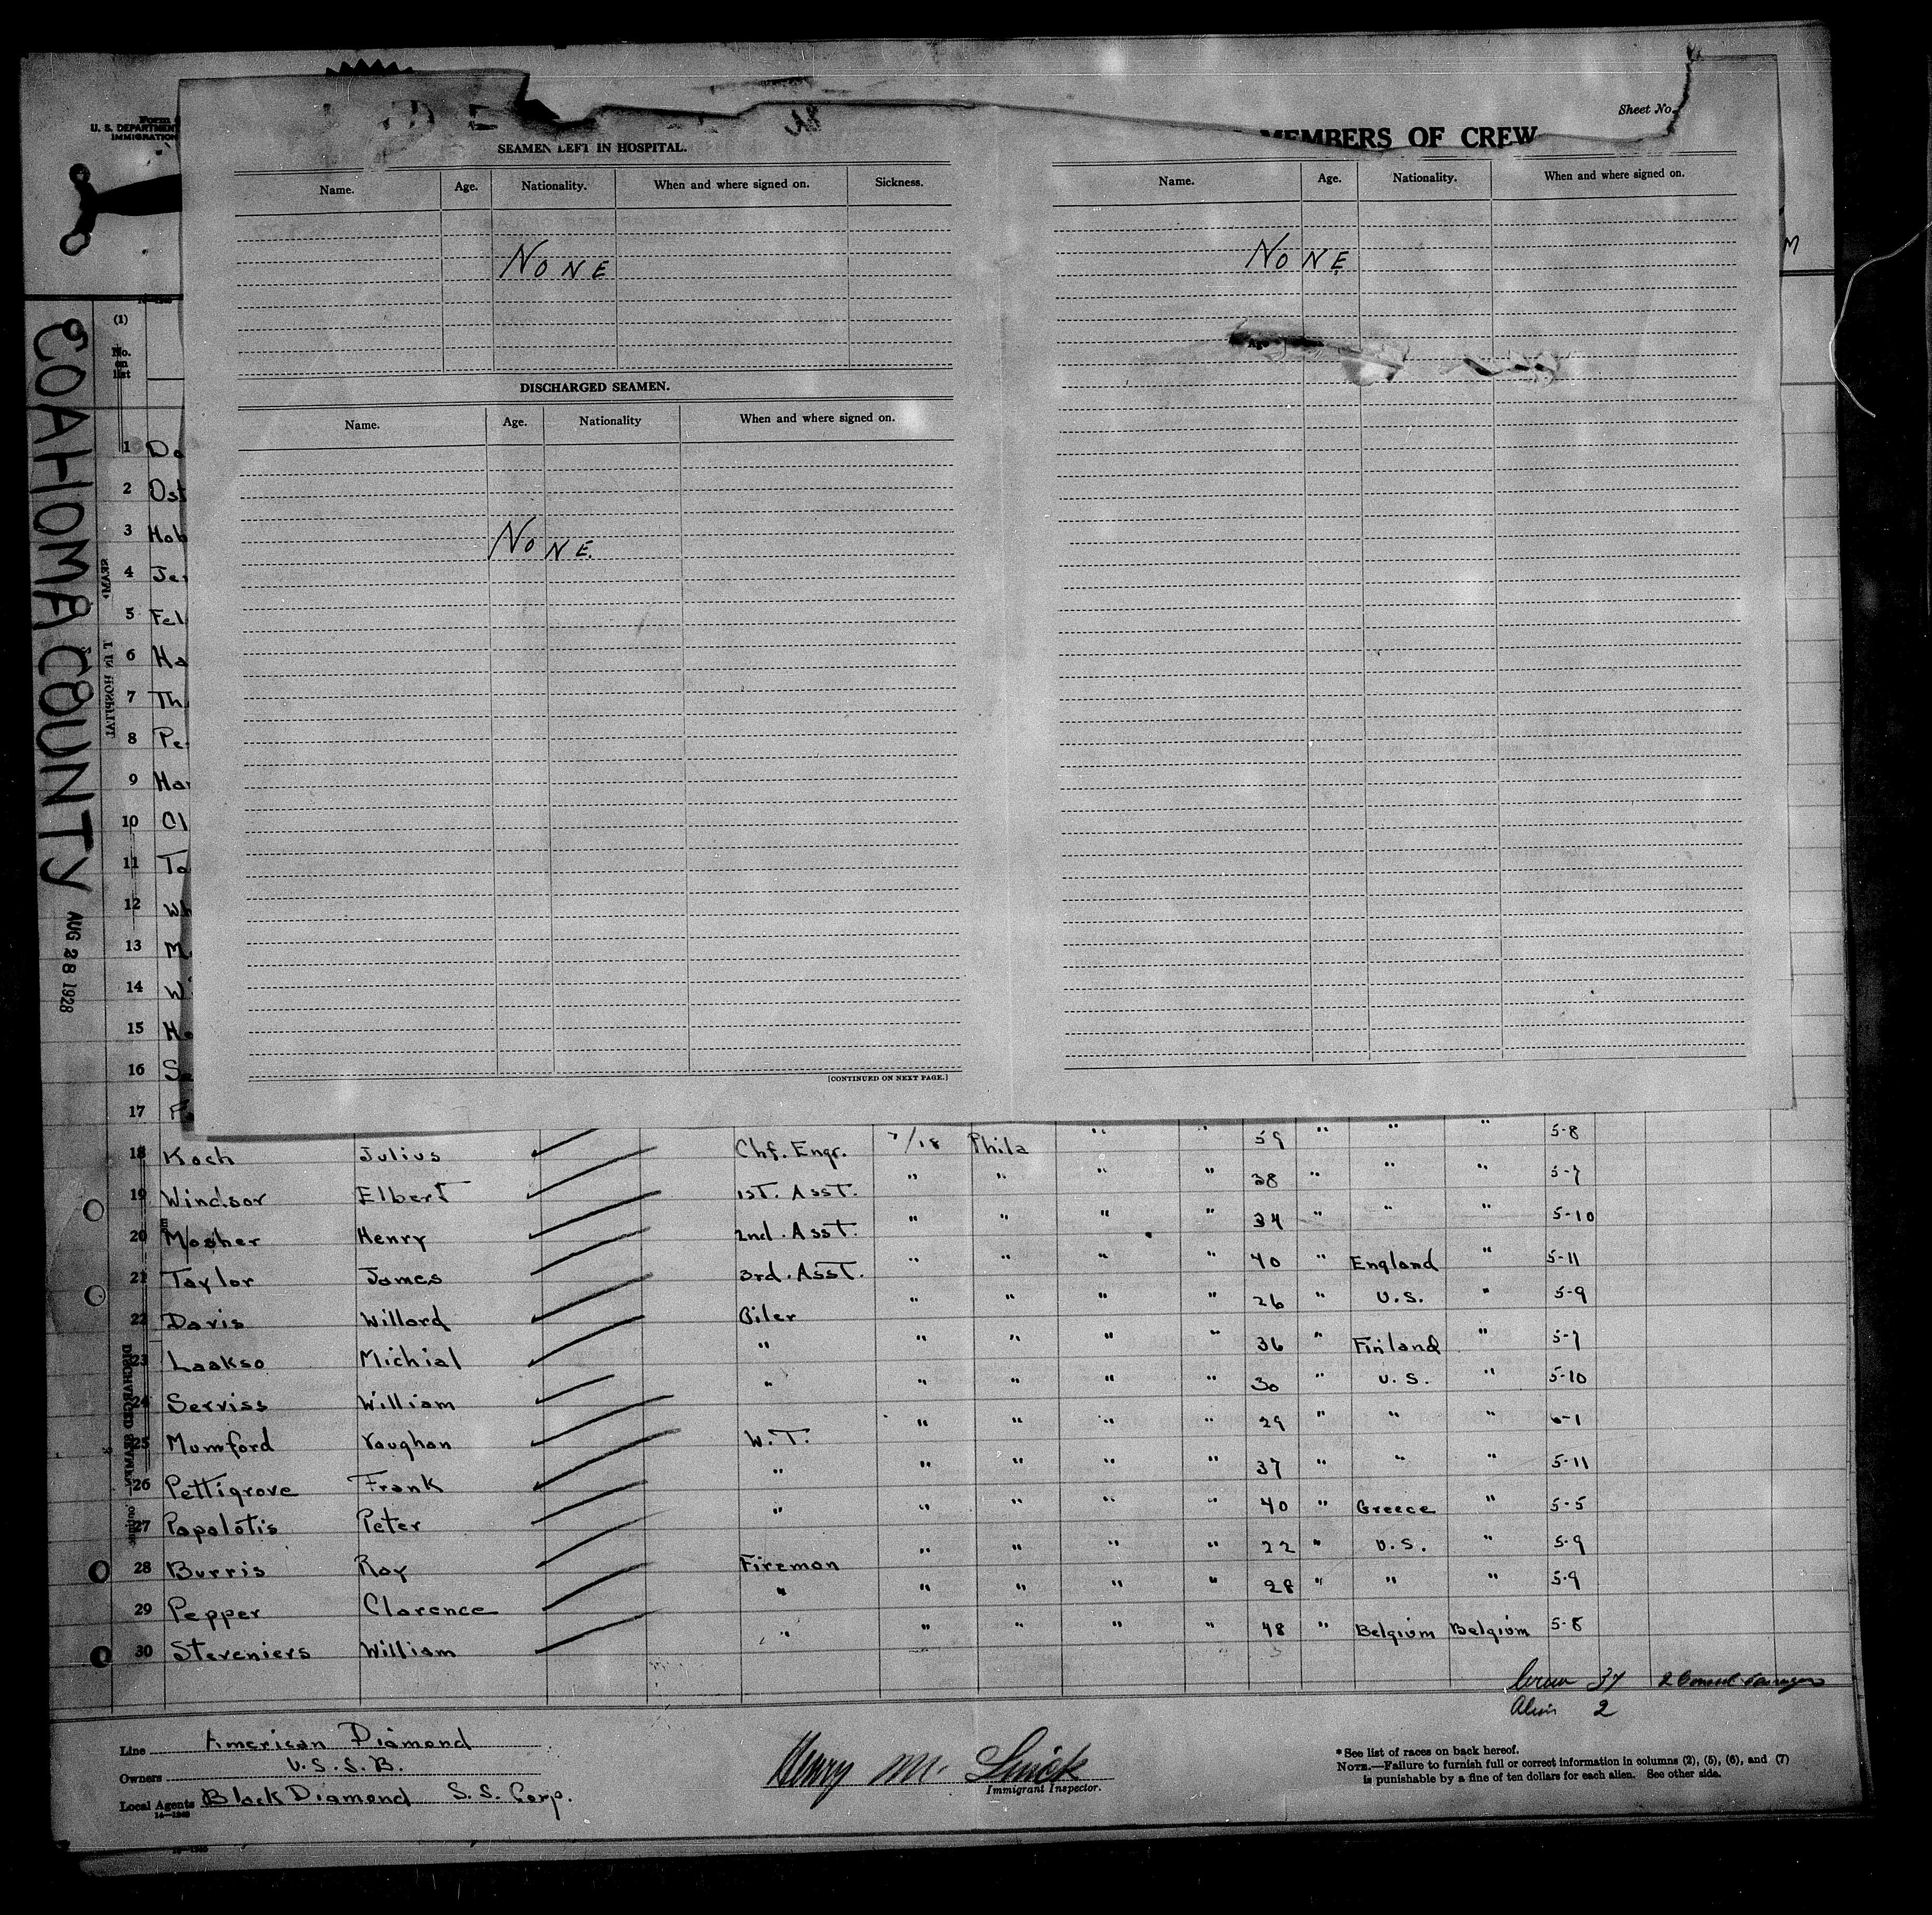 Form
U. S. DEPARTMENT
IMMIGRATION
Sheet No.
MEMBERS OF CREW
SEAMEN LEFT IN HOSPITAL.
Name. Age. Nationality. When and where signed on. Sickness.
NONE
Name. Age. Nationality. When and where signed on.
NONE
DISCHARGED SEAMEN.
Name. Age. Nationality When and where signed on.
NONE.
[CONTINUED ON NEXT PAGE.]
COAHOMA COUNTY AUG 28 1928
(1)
No. on list
1 Da
2 Ost
3 Hob
4 Je
5 Fel
6 Ha
7 Th
8 Pe
9 Har
10 Cl
11 Ta
12 Wh
13 M
14 W
15 Ho
16 S
17 F
18 Koch Julius Chf. Engr. 7/18 Phila " " 59 " " " 5-8
19 Windsor Elbert 1st. Asst. " " " " 38 " " " 5-7
20 Mosher Henry 2nd. Asst. " " " " 34 " " " 5-10
21 Taylor James 3rd. Asst. " " " " 40 " England " 5-11
22 Davis Willard Oiler " " " " 26 " U.S. " 5-9
23 Laakso Michial " " " " " 36 " Finland " 5-7
24 Serviss William " " " " " 30 " U.S. " 5-10
25 Mumford Vaughan W.T. " " " " 29 " " " 6-1
26 Pettigrove Frank " " " " " 37 " " " 5-11
27 Papalotis Peter " " " " " 40 " Greece " 5-5
28 Burris Ray Fireman " " " " 22 " U.S. " 5-9
29 Pepper Clarence " " " " " 28 " " " 5-9
30 Steveniers William " " " " " 48 " Belgium Belgium 5-8
Crew 37
Alien 2
Line American Diamond
Owners U.S.S.B.
Local Agents Black Diamond S.S. Corp.
Henry M.
Immigrant Inspector.
* See list of races on back hereof.
NOTE.—Failure to furnish full or correct information in columns (2), (5), (6), and (7)
is punishable by a fine of ten dollars for each alien. See other side.